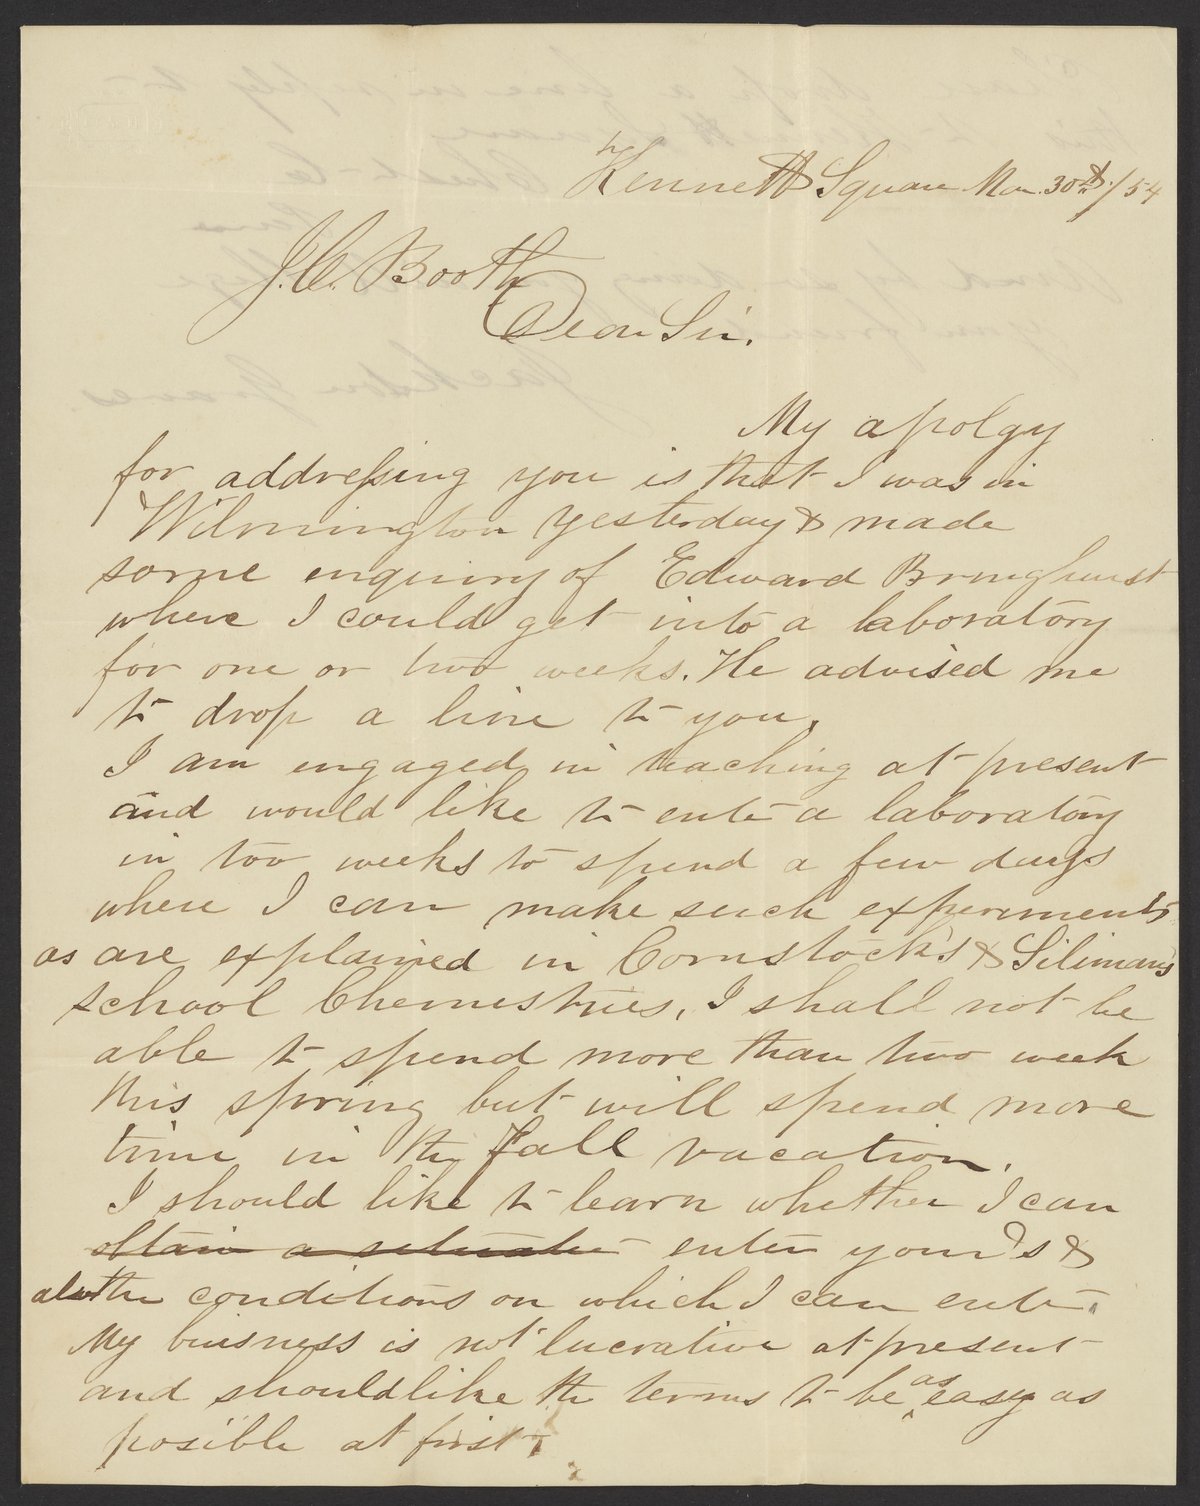 Kennett Square Mar. 30th/54
J. C. Booth
Dear Sir.
My apolgy
for addressing you is that I was in
Wilmington yesterday & made
some enquiry of Edward Bringhurst
where I could get into a laboratory
for one or two weeks. He advised me
to drop a line to you.
I am engaged in teaching at present
and would like to enter a laboratory
in two weeks to spend a few days
where I can make such experiments
as are explained in Comstock's & Siliman's
school Chemestries, I shall not be
able to spend more than two week
this spring but will spend more
time in the fall vacation.
I should like to learn whether I can
obtain a situation enter your's &
also the conditions on which I can enter.
My buisness is not lucrative at present
and should like the terms to be as easy as
posible at first.